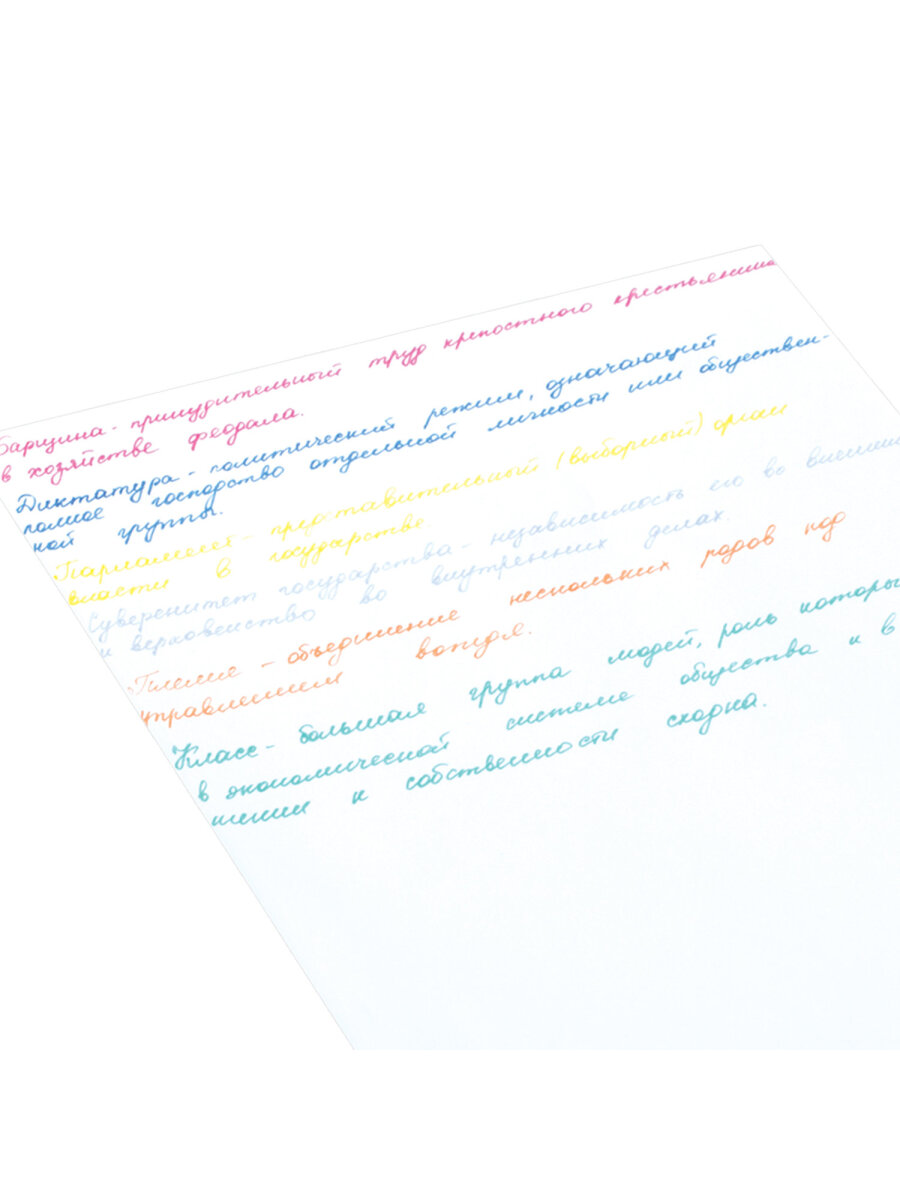 Барщина - принудительный труд крепостного крестьянина
в хозяйстве феодала.
Диктатура - политический режим, означающий
полное господство отдельной личности или обществен-
ной группы.
Парламент - представительный (выборный) орган
власти в государстве.
Суверенитет государства - независимость его во внешних
и верховенство во внутренних делах.
Племя - объединение нескольких родов под
управлением вождя.
Класс - большая группа людей, роль которых
в экономической системе общества и в
шении к собственности сходна.